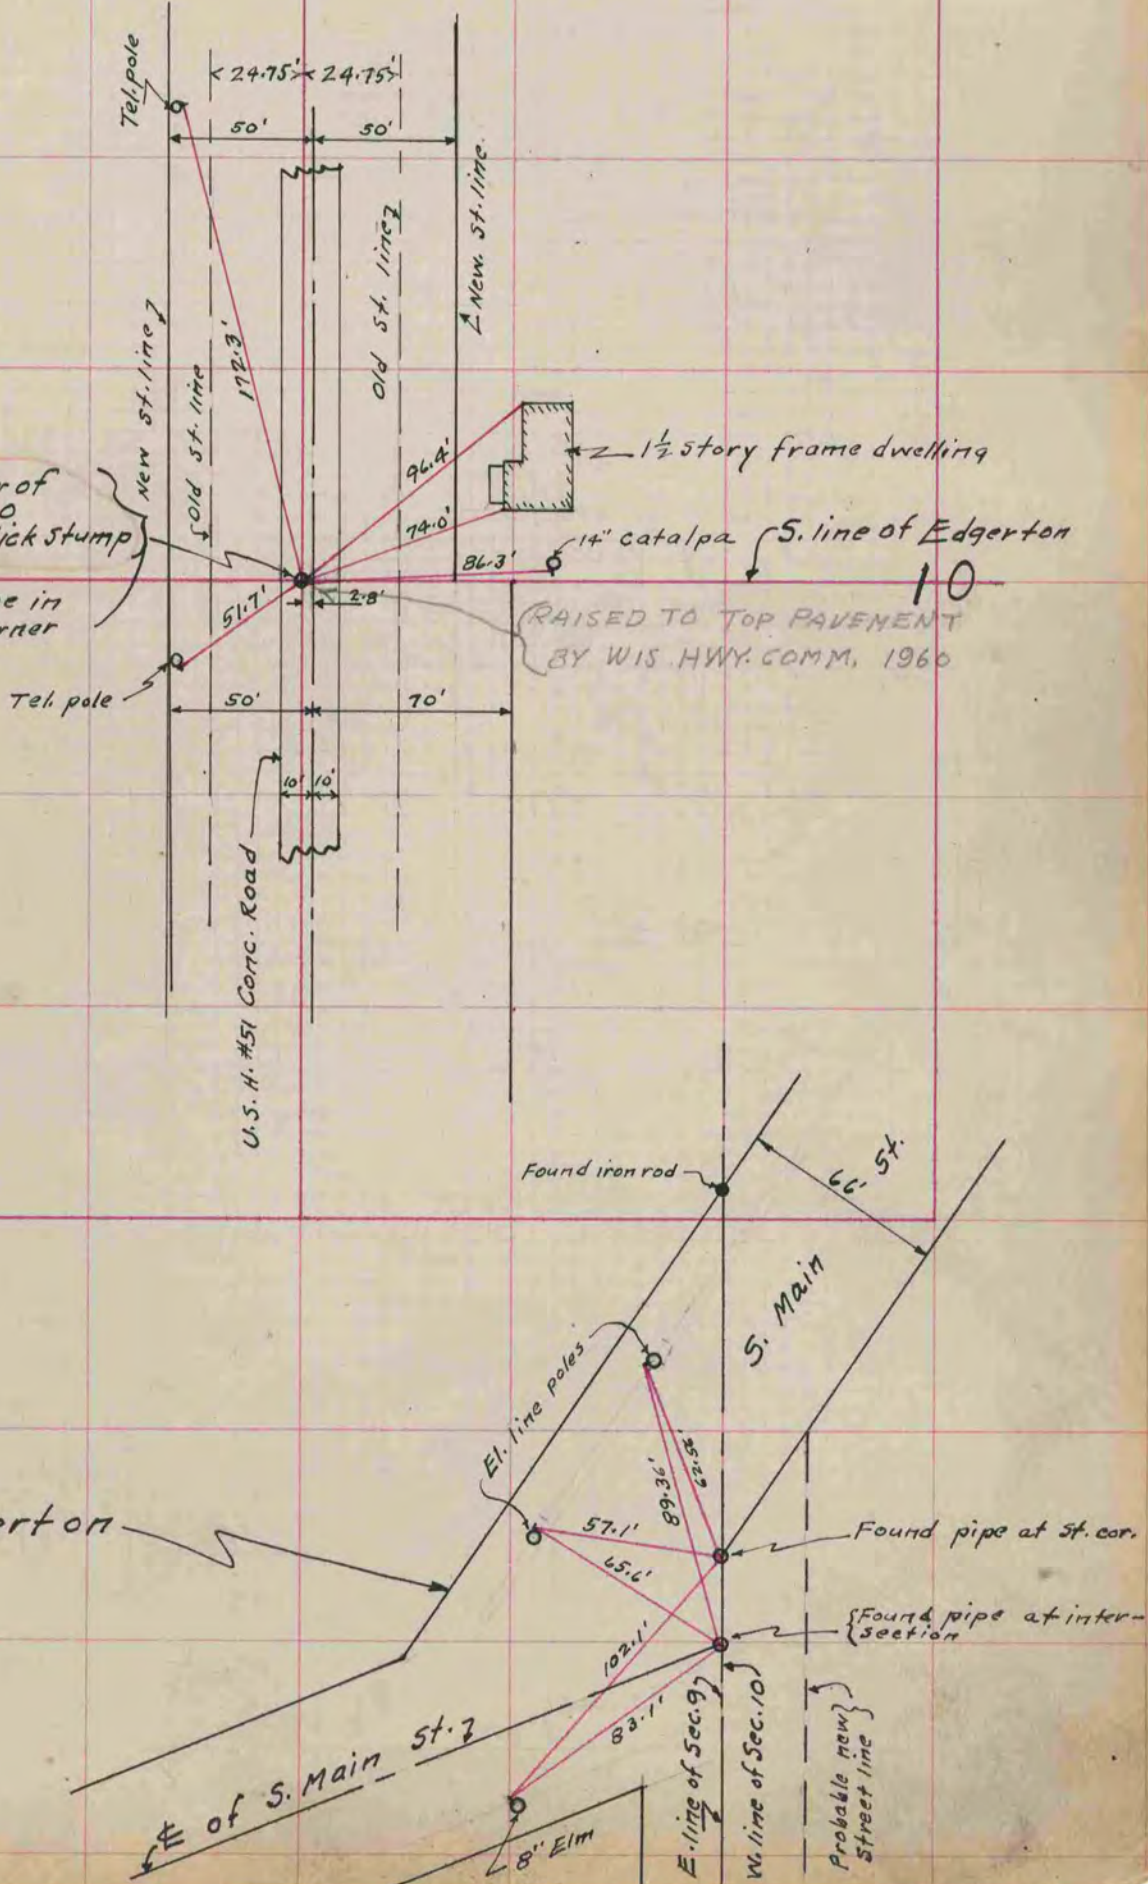 Tel. pole
24.75' 24.75'
50' 50'
New. St. line.
Old St. line
New St. line
Old St. line
172.3'
96.4'
1½ story frame dwelling
74.0'
14" catalpa
S. line of Edgerton
86.3'
10
r of
ick stump
e in
rner
51.7'
2.8'
RAISED TO TOP PAVEMENT
BY WIS. HWY. COMM. 1960
Tel. pole
50' 70'
10' 10'
U.S.H. #51 Conc. Road
Found iron rod
66' St.
S. Main
El. line poles
62.56'
89.36'
57.1'
65.6'
Found pipe at St. cor.
erton
Found pipe at inter-
section
102.1'
83.1'
E. line of Sec. 9
W. line of Sec. 10
Probable new
street line
℄ of S. Main St.
8" Elm